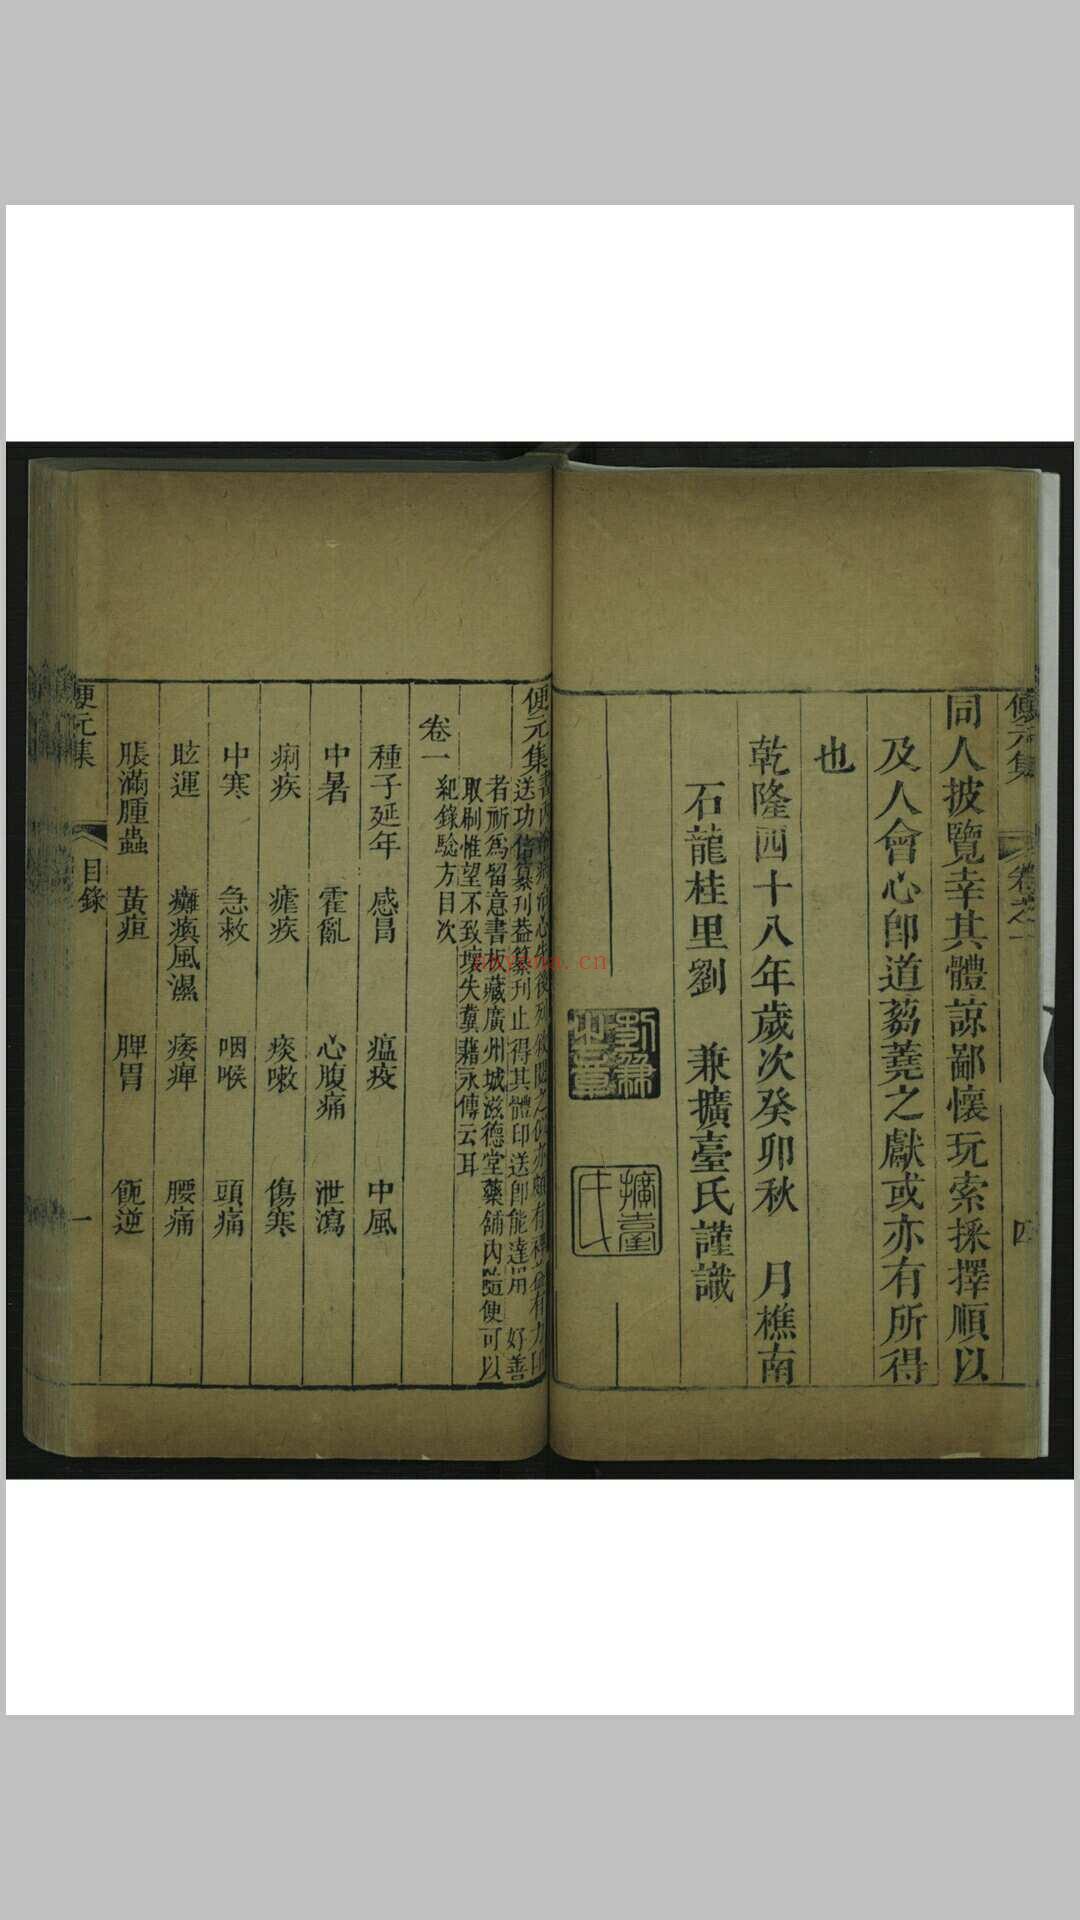 同人披覽幸其體諒鄙懷玩索採擇順以
及人會心卽道蒭蕘之獻或亦有所得
也
乾隆四十八年歲次癸卯秋 月樵南
石龍桂里劉 兼擴臺氏謹識
擴臺氏
便元集
卷之一
四
便元集
送功倍纂刊葢纂刊止得其體印送卽能達用 好善
者祈爲留意書板藏廣州城滋德堂藥舖內隨便可以
取刷惟望不致壞失冀藉永傳云耳
紀錄驗方目次
卷一
種子延年 感冒 瘟疫 中風
中暑 霍亂 心腹痛 泄瀉
痢疾 瘧疾 痰嗽 傷寒
中寒 急救 咽喉 頭痛
眩運 癱瘓風濕 痿痺 腰痛
脹滿腫蟲 黃疸 脾胃 呃逆
便元集
目錄
一